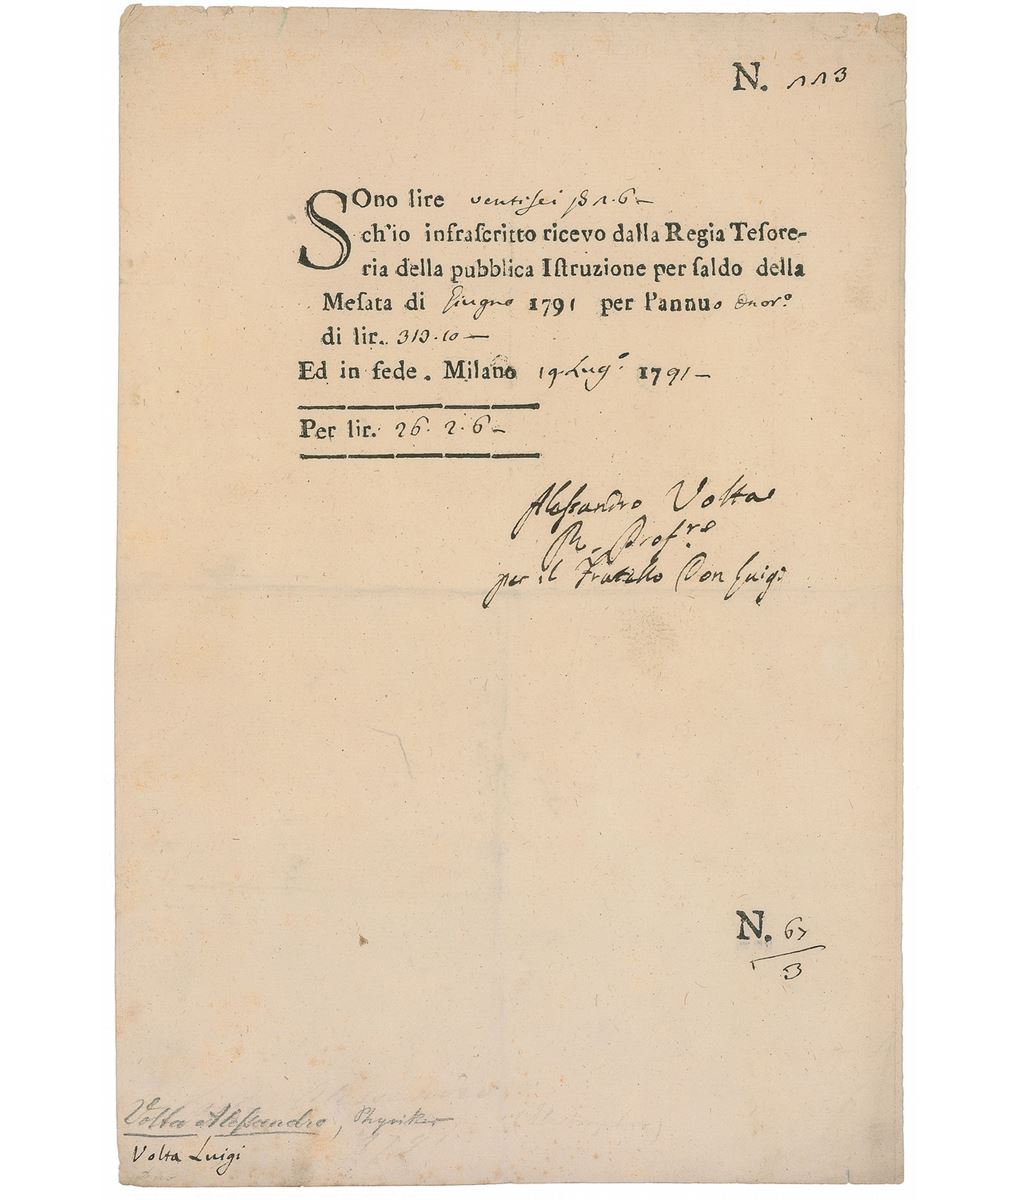 N. 113
SOno lire ventisei ß 2. 6 —
ch'io infraſcritto ricevo dalla Regia Teſore-
ria della pubblica Iſtruzione per ſaldo della
Meſata di Giugno 1791 per l'annuo onor.º
di lir. 313.10 —
Ed in fede. Milano 19 Lug.º 1791 —
Per lir. 26. 2. 6 —
Aleſsandro Volta
R. Profre
per il Fratello Don Luigi
N. 67
3
Volta Aleſsandro, Physiker
Volta Luigi